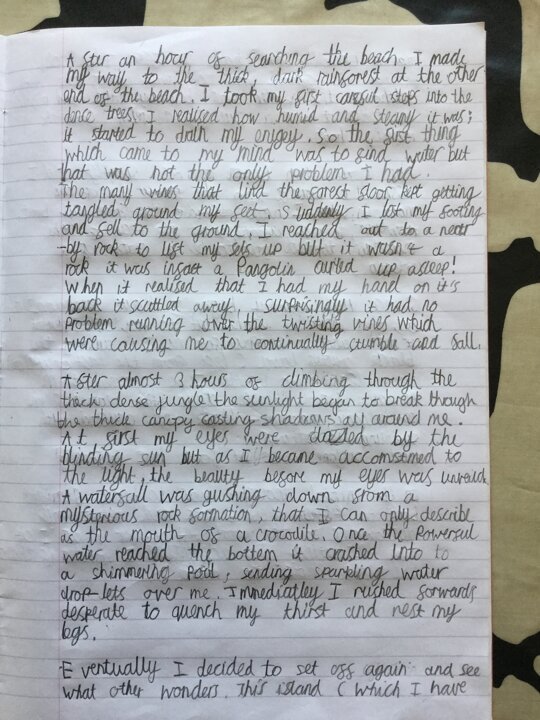 After an hour of searching the beach I made
my way to the thick, dark rainforest at the other
end of the beach. I took my first careful steps into the
dence trees, I realised how humid and steamy it was;
it started to drain my enjegy. So the first thing
which came to my mind was to find water but
that was not the only problem I had.
The many vines that lined the forest floor kept getting
tangled around my feet. suddenly I lost my footing
and fell to the ground. I reached out to a near
-by rock to lift my self up but it wasn't a
rock it was infact a Pangolin curled up asleep!
When it realised that I had my hand on it's
back it scuttled away! surprisingly it had no
problem running over the twisting vines which
were causing me to continually stumble and fall.
After almost 3 hours of climbing through the
thick dense jungle the sunlight began to break through
the thick canopy casting shadows all around me.
At first my eyes were dazzled by the
blinding sun but as I became accomstmed to
the light, the beauty before my eyes was
A waterfall was gushing down from a
mysterious rock formation, that I can only describe
as the mouth of a crocodile. Once the powerful
water reached the bottem it crashed into
a shimmering pool, sending sparkling water
drop-lets over me. Immediatley I rushed forwards
desperate to quench my thirst and rest my
legs.
Eventually I decided to set off again and see
what other wonders. This island (which I have